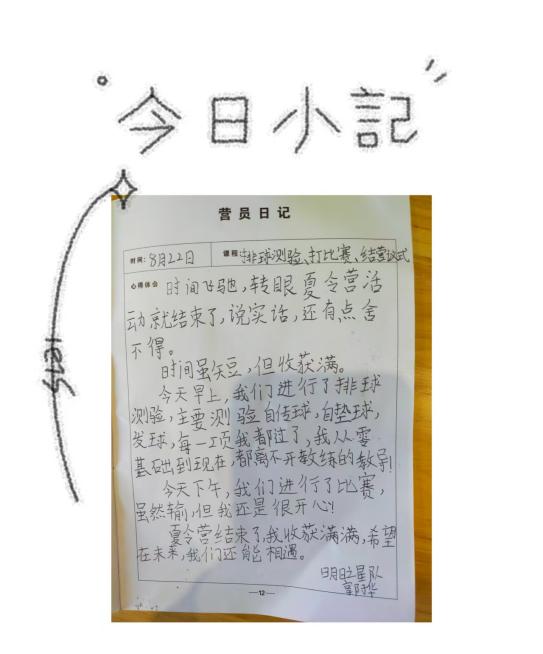 今日小記
营员日记
时间: 8月22日 课程: 排球测验、打比赛、结营仪式
心得体会 时间飞驰，转眼夏令营活
动就结束了，说实话，还有点舍
不得。
时间虽矢豆，但收获满。
今天早上，我们进行了排球
测验，主要测验自传球，自垫球，
发球，每一项我都过了，我从零
基础到现在，都离不开教练的教导!
今天下午，我们进行了比赛，
虽然输，但我还是很开心!
夏令营结束了，我收获满满，希望
在未来，我们还能相遇。
明日之星队
—12—